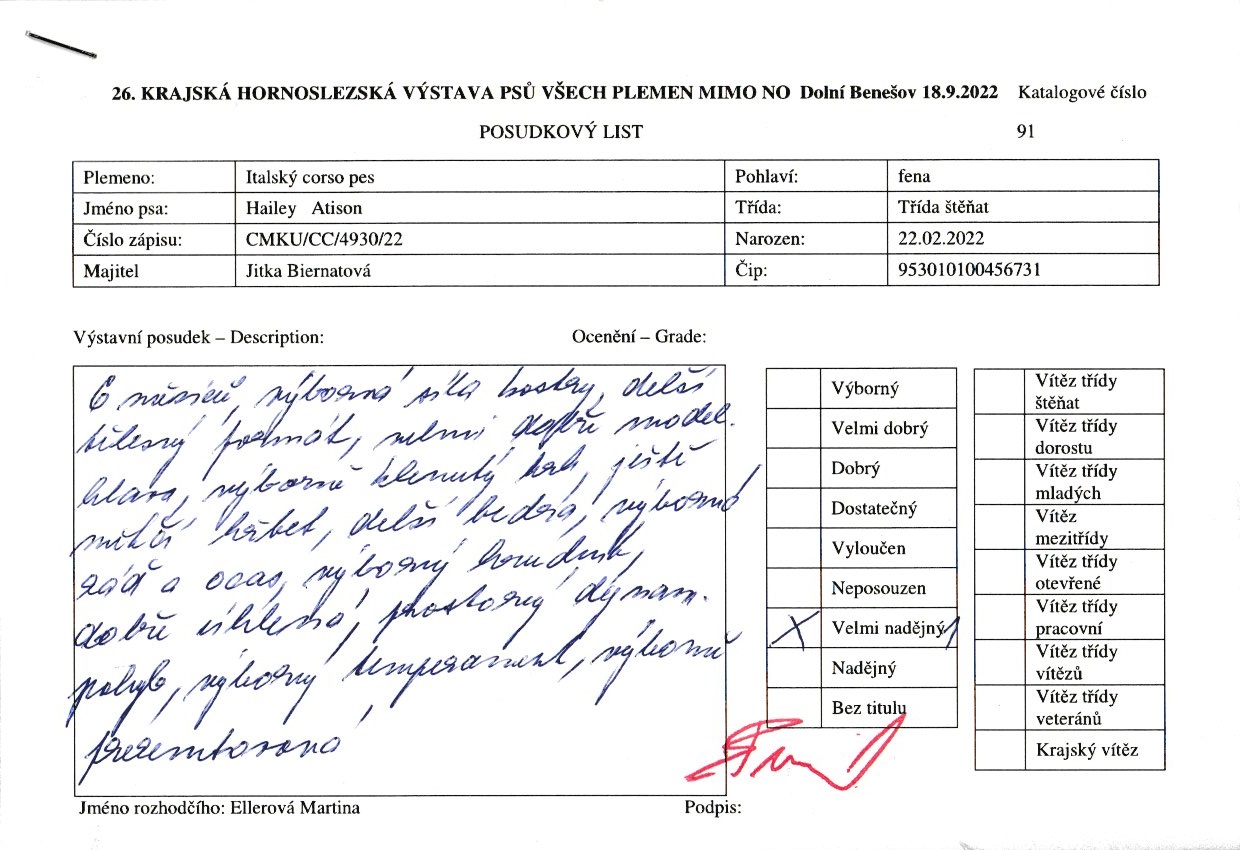 26. KRAJSKÁ HORNOSLEZSKÁ VÝSTAVA PSŮ VŠECH PLEMEN MIMO NO Dolní Benešov 18.9.2022 Katalogové číslo
POSUDKOVÝ LIST 91
Plemeno: Italský corso pes Pohlaví: fena
Jméno psa: Hailey Atison Třída: Třída štěňat
Číslo zápisu: CMKU/CC/4930/22 Narozen: 22.02.2022
Majitel Jitka Biernatová Čip: 953010100456731
Výstavní posudek – Description: Ocenění – Grade:
6 měsíců, výborná síla kostry, delší
tělesný formát, velmi dobře model.
hlava, výborně klenutý krk, ještě
měkčí hřbet, delší bedra, výborná
záď a ocas, výborný hrudník,
dobře úhlená, prostorný dynam.
pohyb, výborný temperament, výborně
prezentovaná
Výborný
Velmi dobrý
Dobrý
Dostatečný
Vyloučen
Neposouzen
X Velmi nadějný 1
Nadějný
Bez titulu
Vítěz třídy
štěňat
Vítěz třídy
dorostu
Vítěz třídy
mladých
Vítěz
mezitřídy
Vítěz třídy
otevřené
Vítěz třídy
pracovní
Vítěz třídy
vítězů
Vítěz třídy
veteránů
Krajský vítěz
Jméno rozhodčího: Ellerová Martina Podpis: